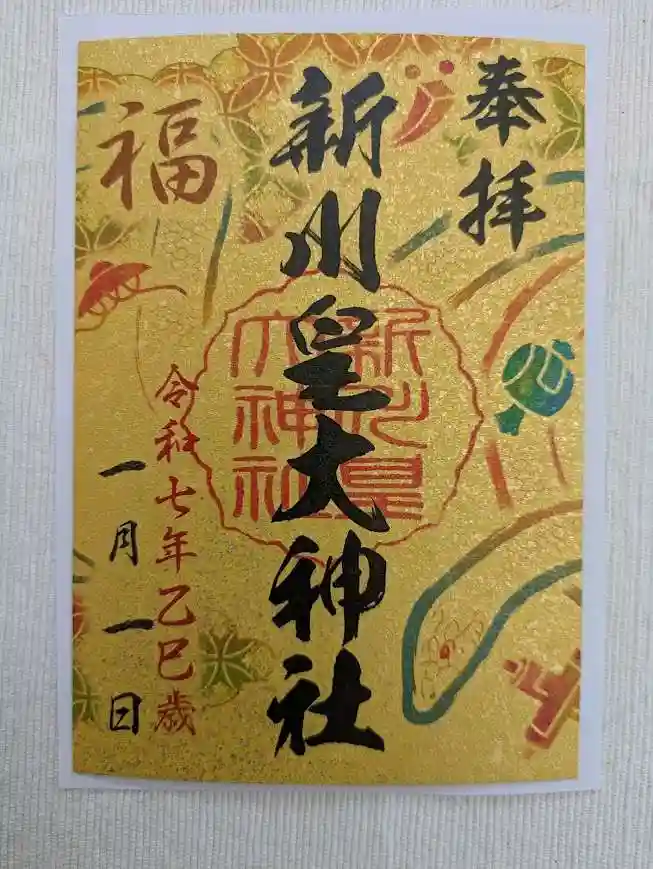 奉拝
新川皇大神社
新川皇
大神社
福
令和七年乙巳歳
一月一日